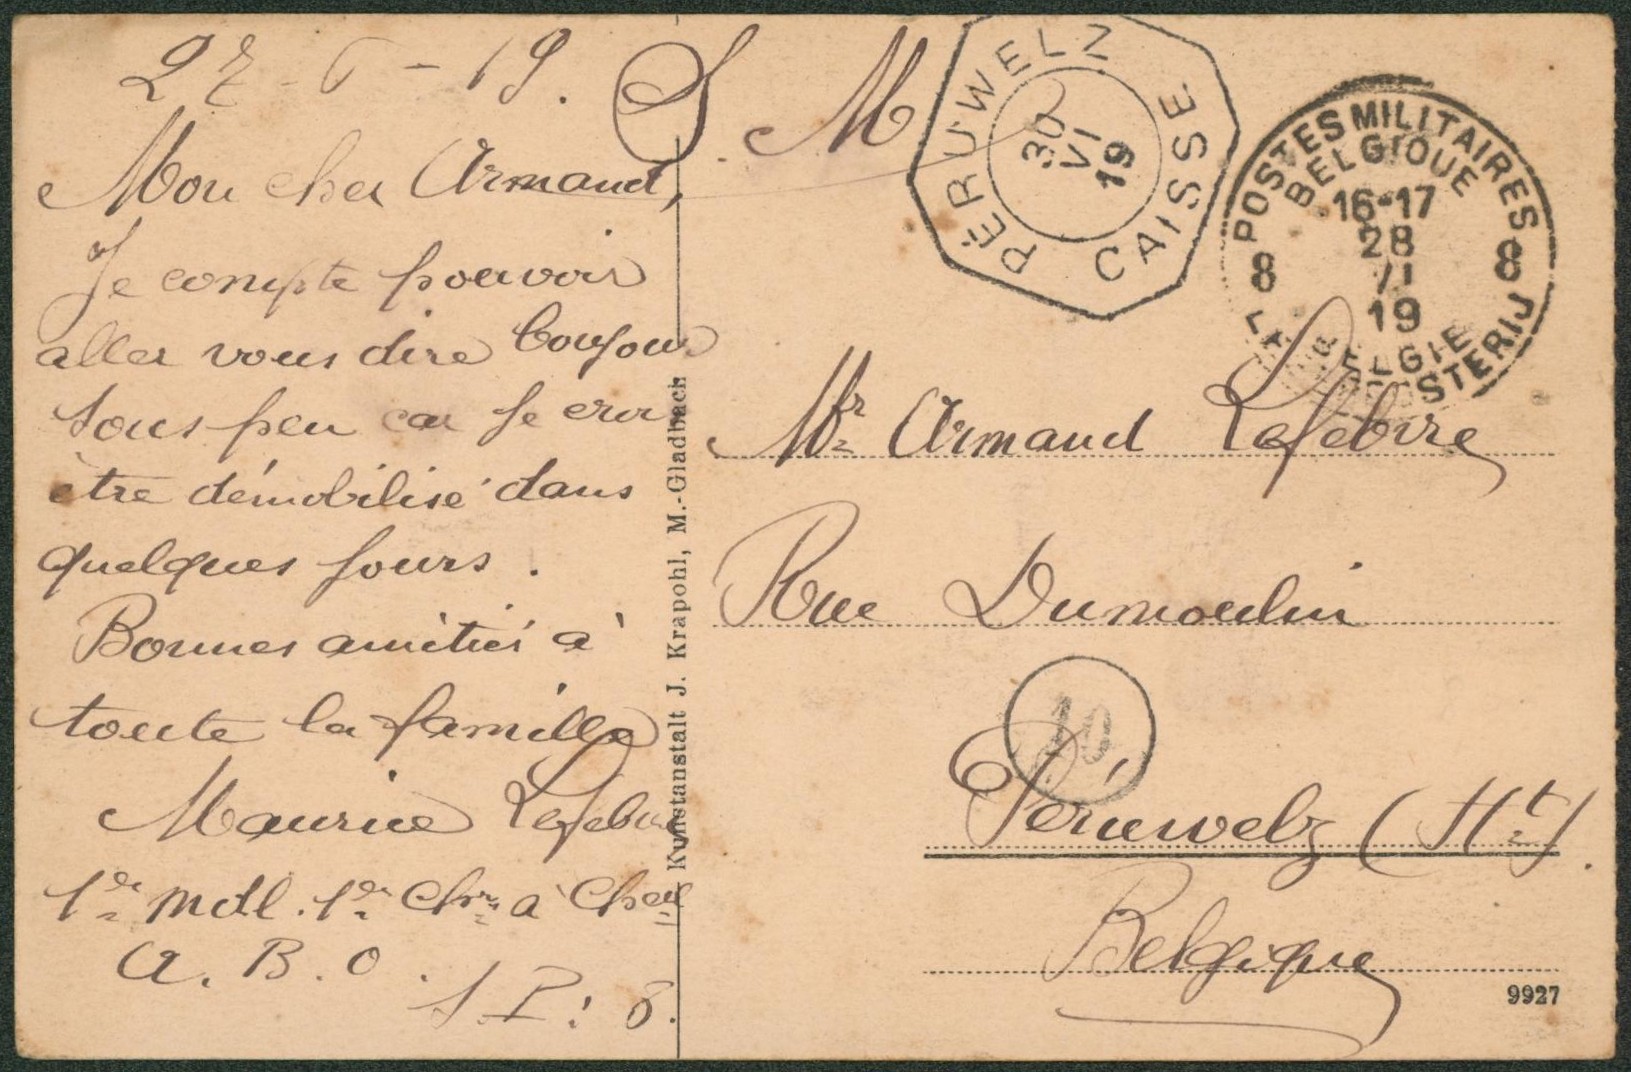 27-6-19.
S. M
Mon cher Armand,
Je compte pouvoir
aller vous dire bonjour
sous peu car je crois
être démobilisé dans
quelques jours.
Bonnes amitiés à
toute la famille
Maurice Lefebvre
1er mdl. 1er Chrs à Chev
A. B. O.
S. P: 8.
Kunstanstalt J. Krapohl, M.-Gladbach
PÉRUWELZ
CAISSE
30
VI
19
POSTES MILITAIRES
BELGIQUE
16-17
28
VI
19
8 8
Mr Armand Lefebvre
Rue Dumoulin
10
Péruwelz (Ht).
Belgique
9927